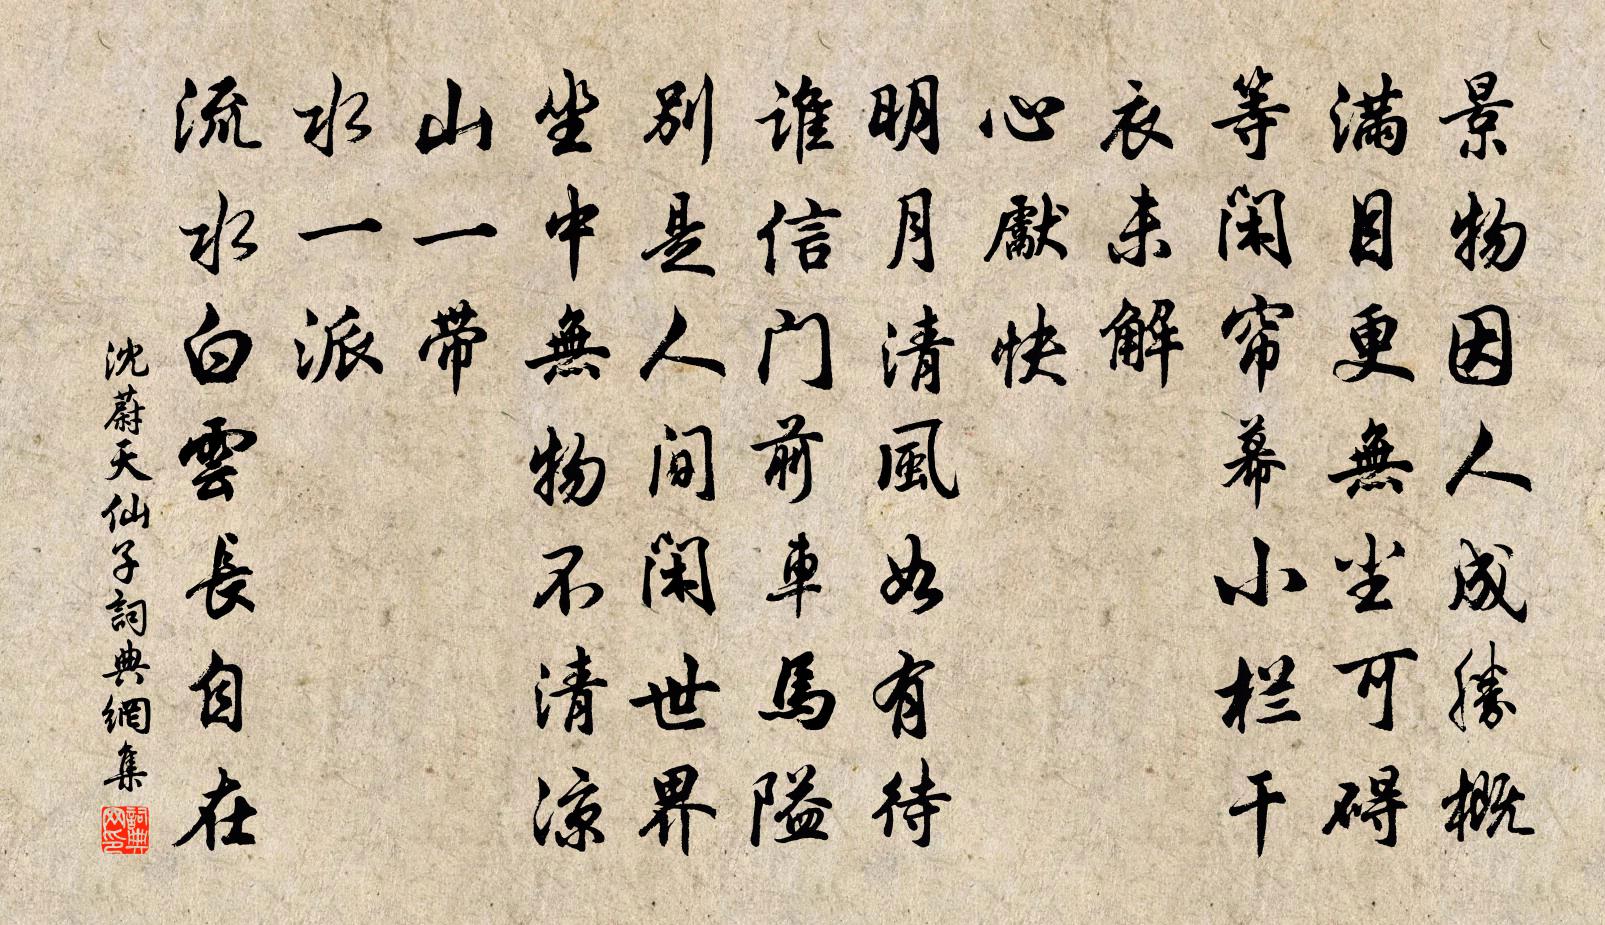 景物因人成勝概
滿目更無尘可碍
等閑帘幕小栏干
衣未解
心獻快
明月清風如有待
谁信门前車馬隘
别是人间閑世界
坐中無物不清涼
山一带
水一派
流水白雲長自在
沈蔚天仙子詞典網集
詞典网印